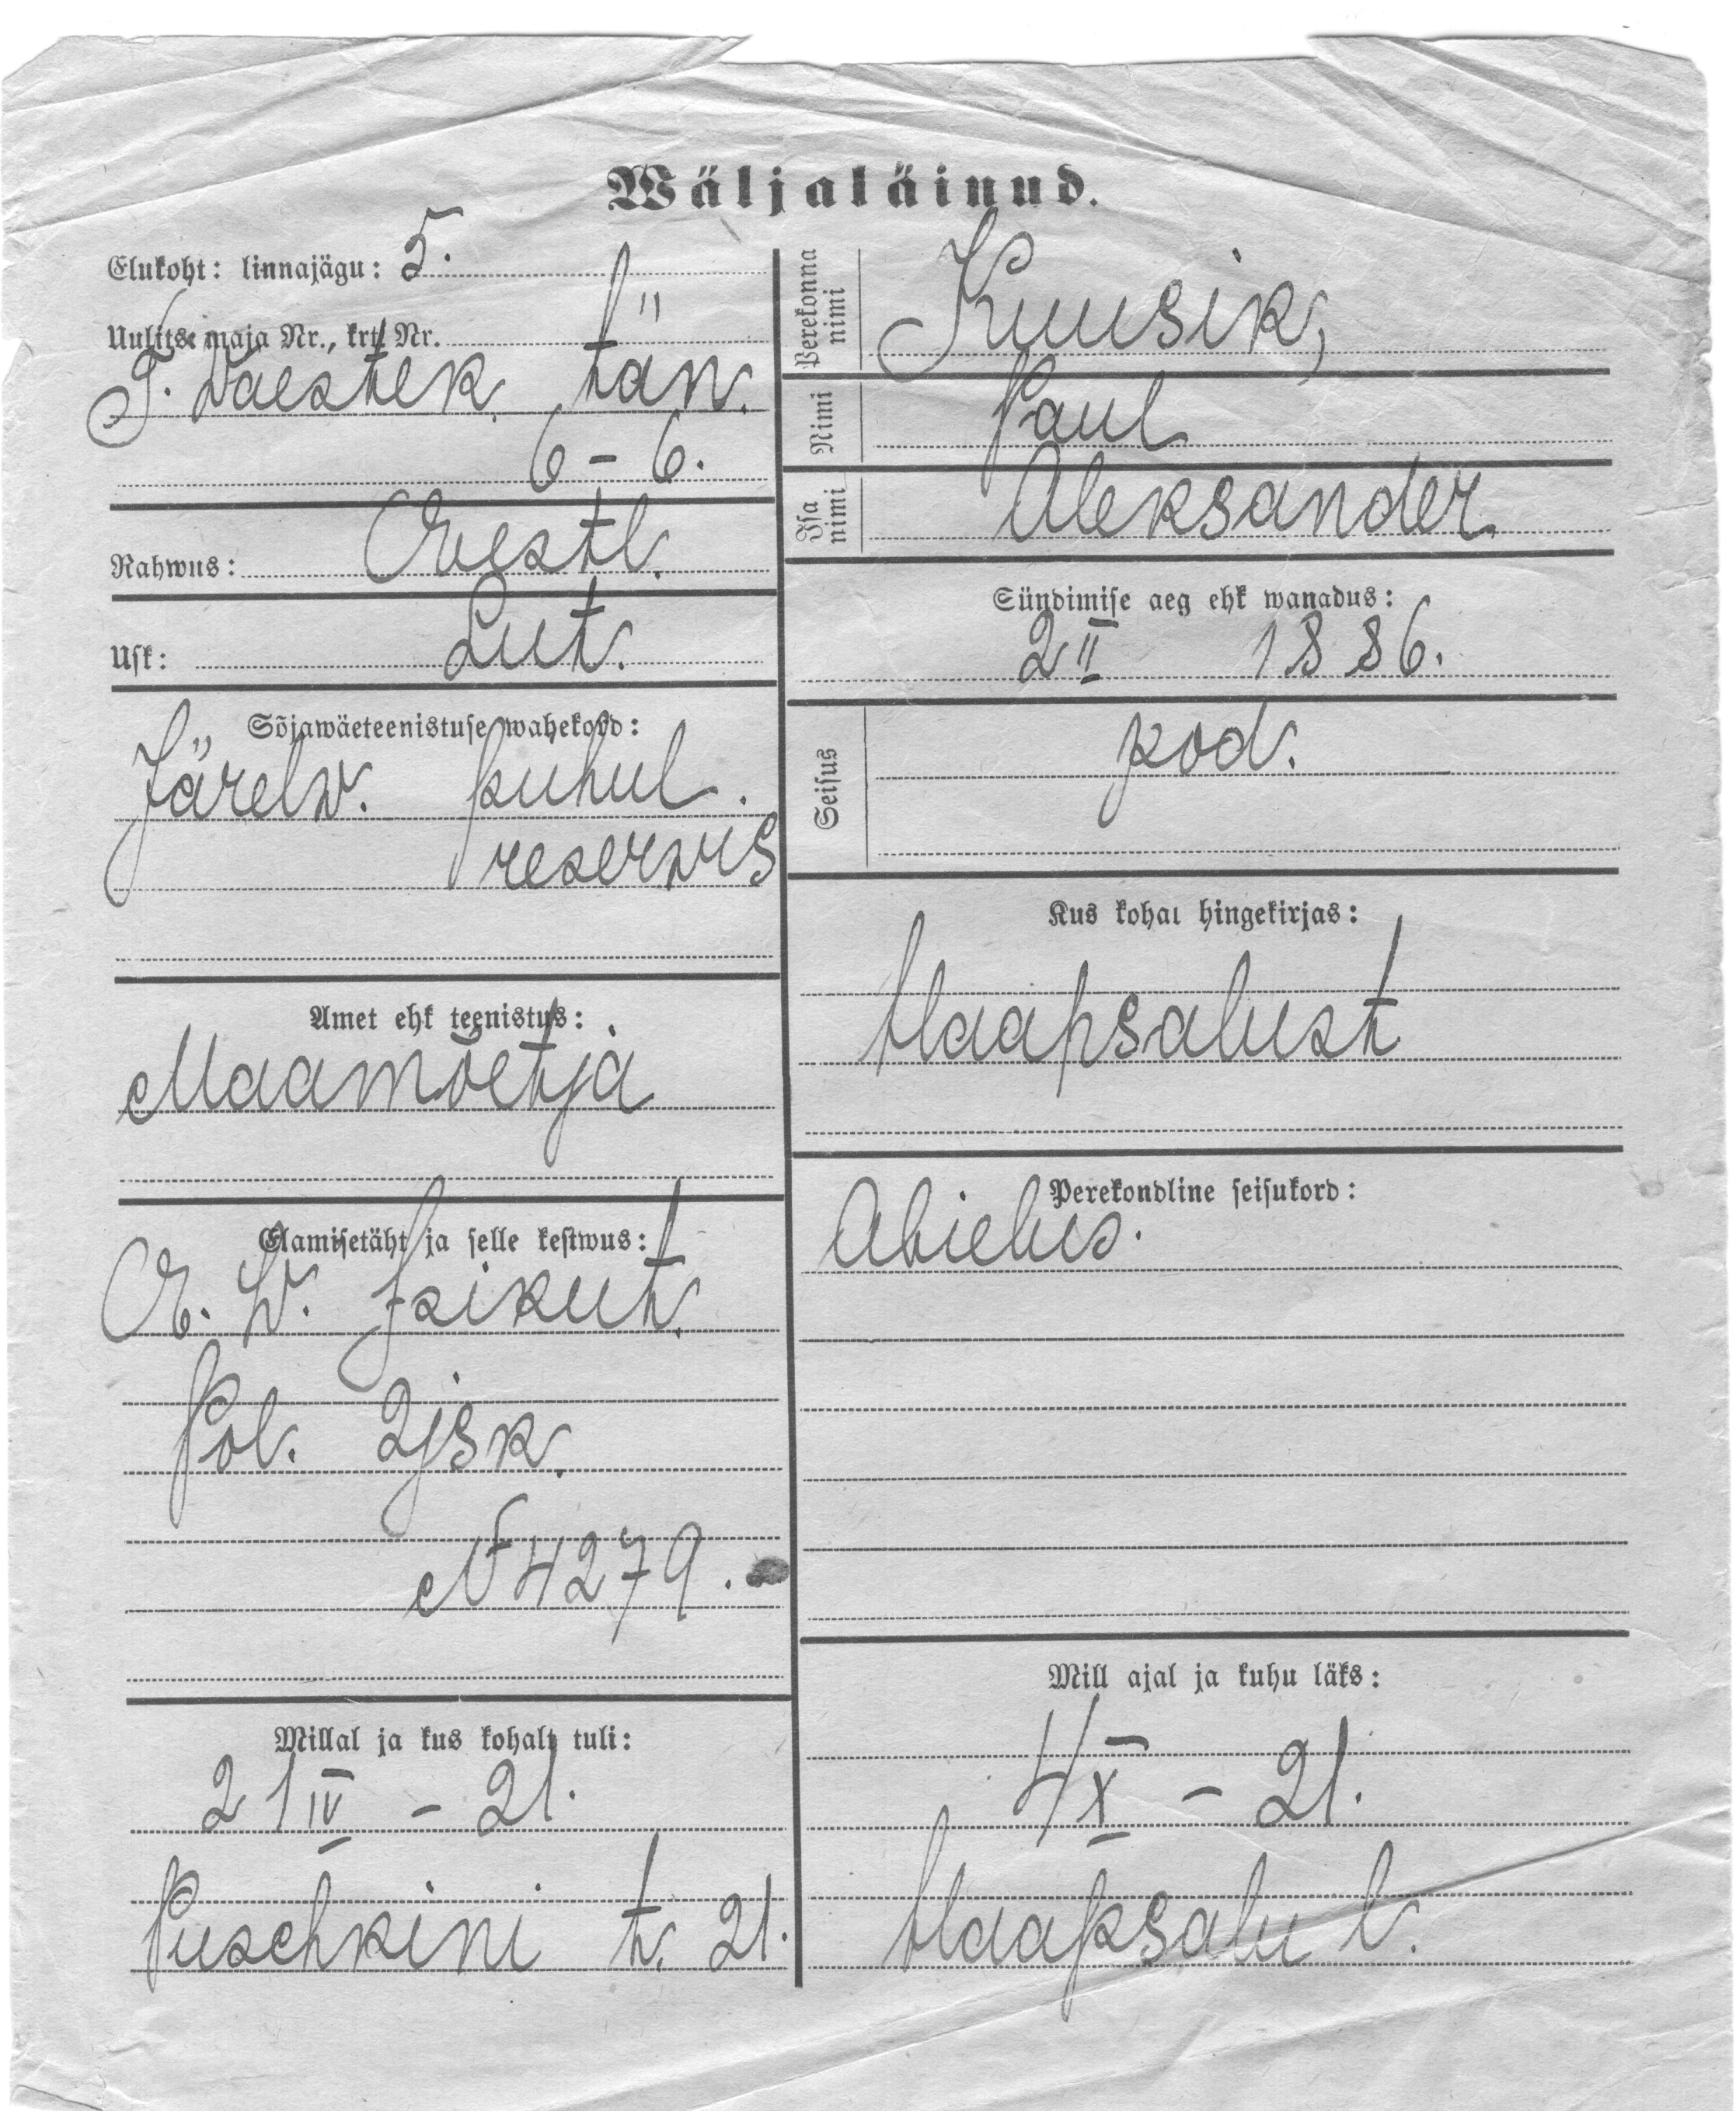 Wäljaläinud.
Elukoht: linnajägu: 5.
Uulits, maja Nr., krt. Nr.
T. Vaestek. tän.
6 - 6.
Rahwus: Eestl.
Usk: Lut.
Sõjawäeteenistuse wahekord:
Järelw. puhul.
reserwis
Amet ehk teenistus:
Maamõetja
Elamisetäht ja selle kestwus:
E. W. Isikut.
Pol. 2 jsk.
N 4279.
Millal ja kus kohalt tuli:
21 IV - 21.
Puschkini t. 21.
Perekonna nimi Kuusik,
Nimi Paul
Isa nimi Aleksander
Sündimise aeg ehk wanadus:
2 II 1886.
Seisus kod.
Kus kohal hingekirjas:
Haapsalust
Perekondline seisukord:
Abielus.
Mill ajal ja kuhu läks:
4 X - 21.
Haapsalu l.